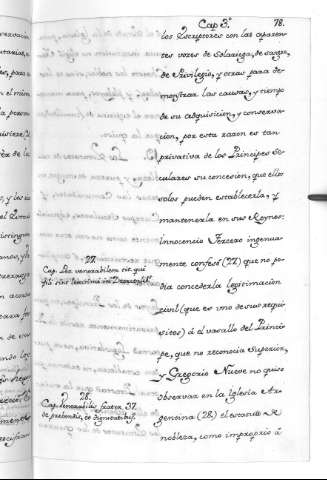 Cap 3.º
78.
los Escriptores con las aparen-
tes voces de Solariega, de sangre,
de Privilegio, y otras para de-
mostrar las causas, y tiempo
de su adquisicion, y conserva-
cion, por esta razon es tan
privativa de los Principes Se-
culares su concesion, que ellos
solos pueden establecerla, y
mantenerla en sus Reynos:
Innocencio Tercero ingenua-
mente confesó (27) que no po-
dia concederla Legitimacion
civil (que es uno de sus requi-
sitos) á el vasallo del Princi-
pe, que no reconocia Superior,
y Gregorio Nueve no quiso
observar en la Iglesia Ar-
gentina (28) el estatuto de
nobleza, como improprio á
27
Cap. Per venerabilem tit. qui
filij sint legitimi in
28.
Cap. Venerabilis frater, 37.
de prebendis, et dignitatibus